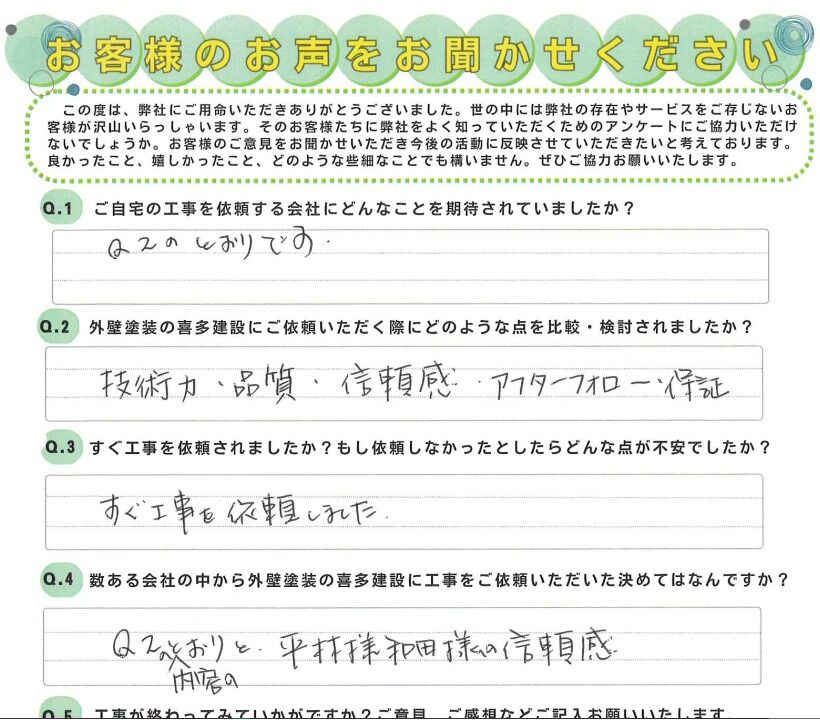 お客様のお声をお聞かせください
この度は、弊社にご用命いただきありがとうございました。世の中には弊社の存在やサービスをご存じないお
客様が沢山いらっしゃいます。そのお客様たちに弊社をよく知っていただくためのアンケートにご協力いただけ
ないでしょうか。お客様のご意見をお聞かせいただき今後の活動に反映させていただきたいと考えております。
良かったこと、嬉しかったこと、どのような些細なことでも構いません。ぜひご協力お願いいたします。
Q.1 ご自宅の工事を依頼する会社にどんなことを期待されていましたか？
Q2のとおりです.
Q.2 外壁塗装の喜多建設にご依頼いただく際にどのような点を比較・検討されましたか？
技術力・品質・信頼感・アフターフォロー・保証
Q.3 すぐ工事を依頼されましたか？もし依頼しなかったとしたらどんな点が不安でしたか？
すぐ工事を依頼しました.
Q.4 数ある会社の中から外壁塗装の喜多建設に工事をご依頼いただいた決めてはなんですか？
Q2のとおりと. 平林様和田様の信頼感
内容の
Q.5 工事が終わってみていかがですか？ご意見、ご感想などご記入お願いいたします